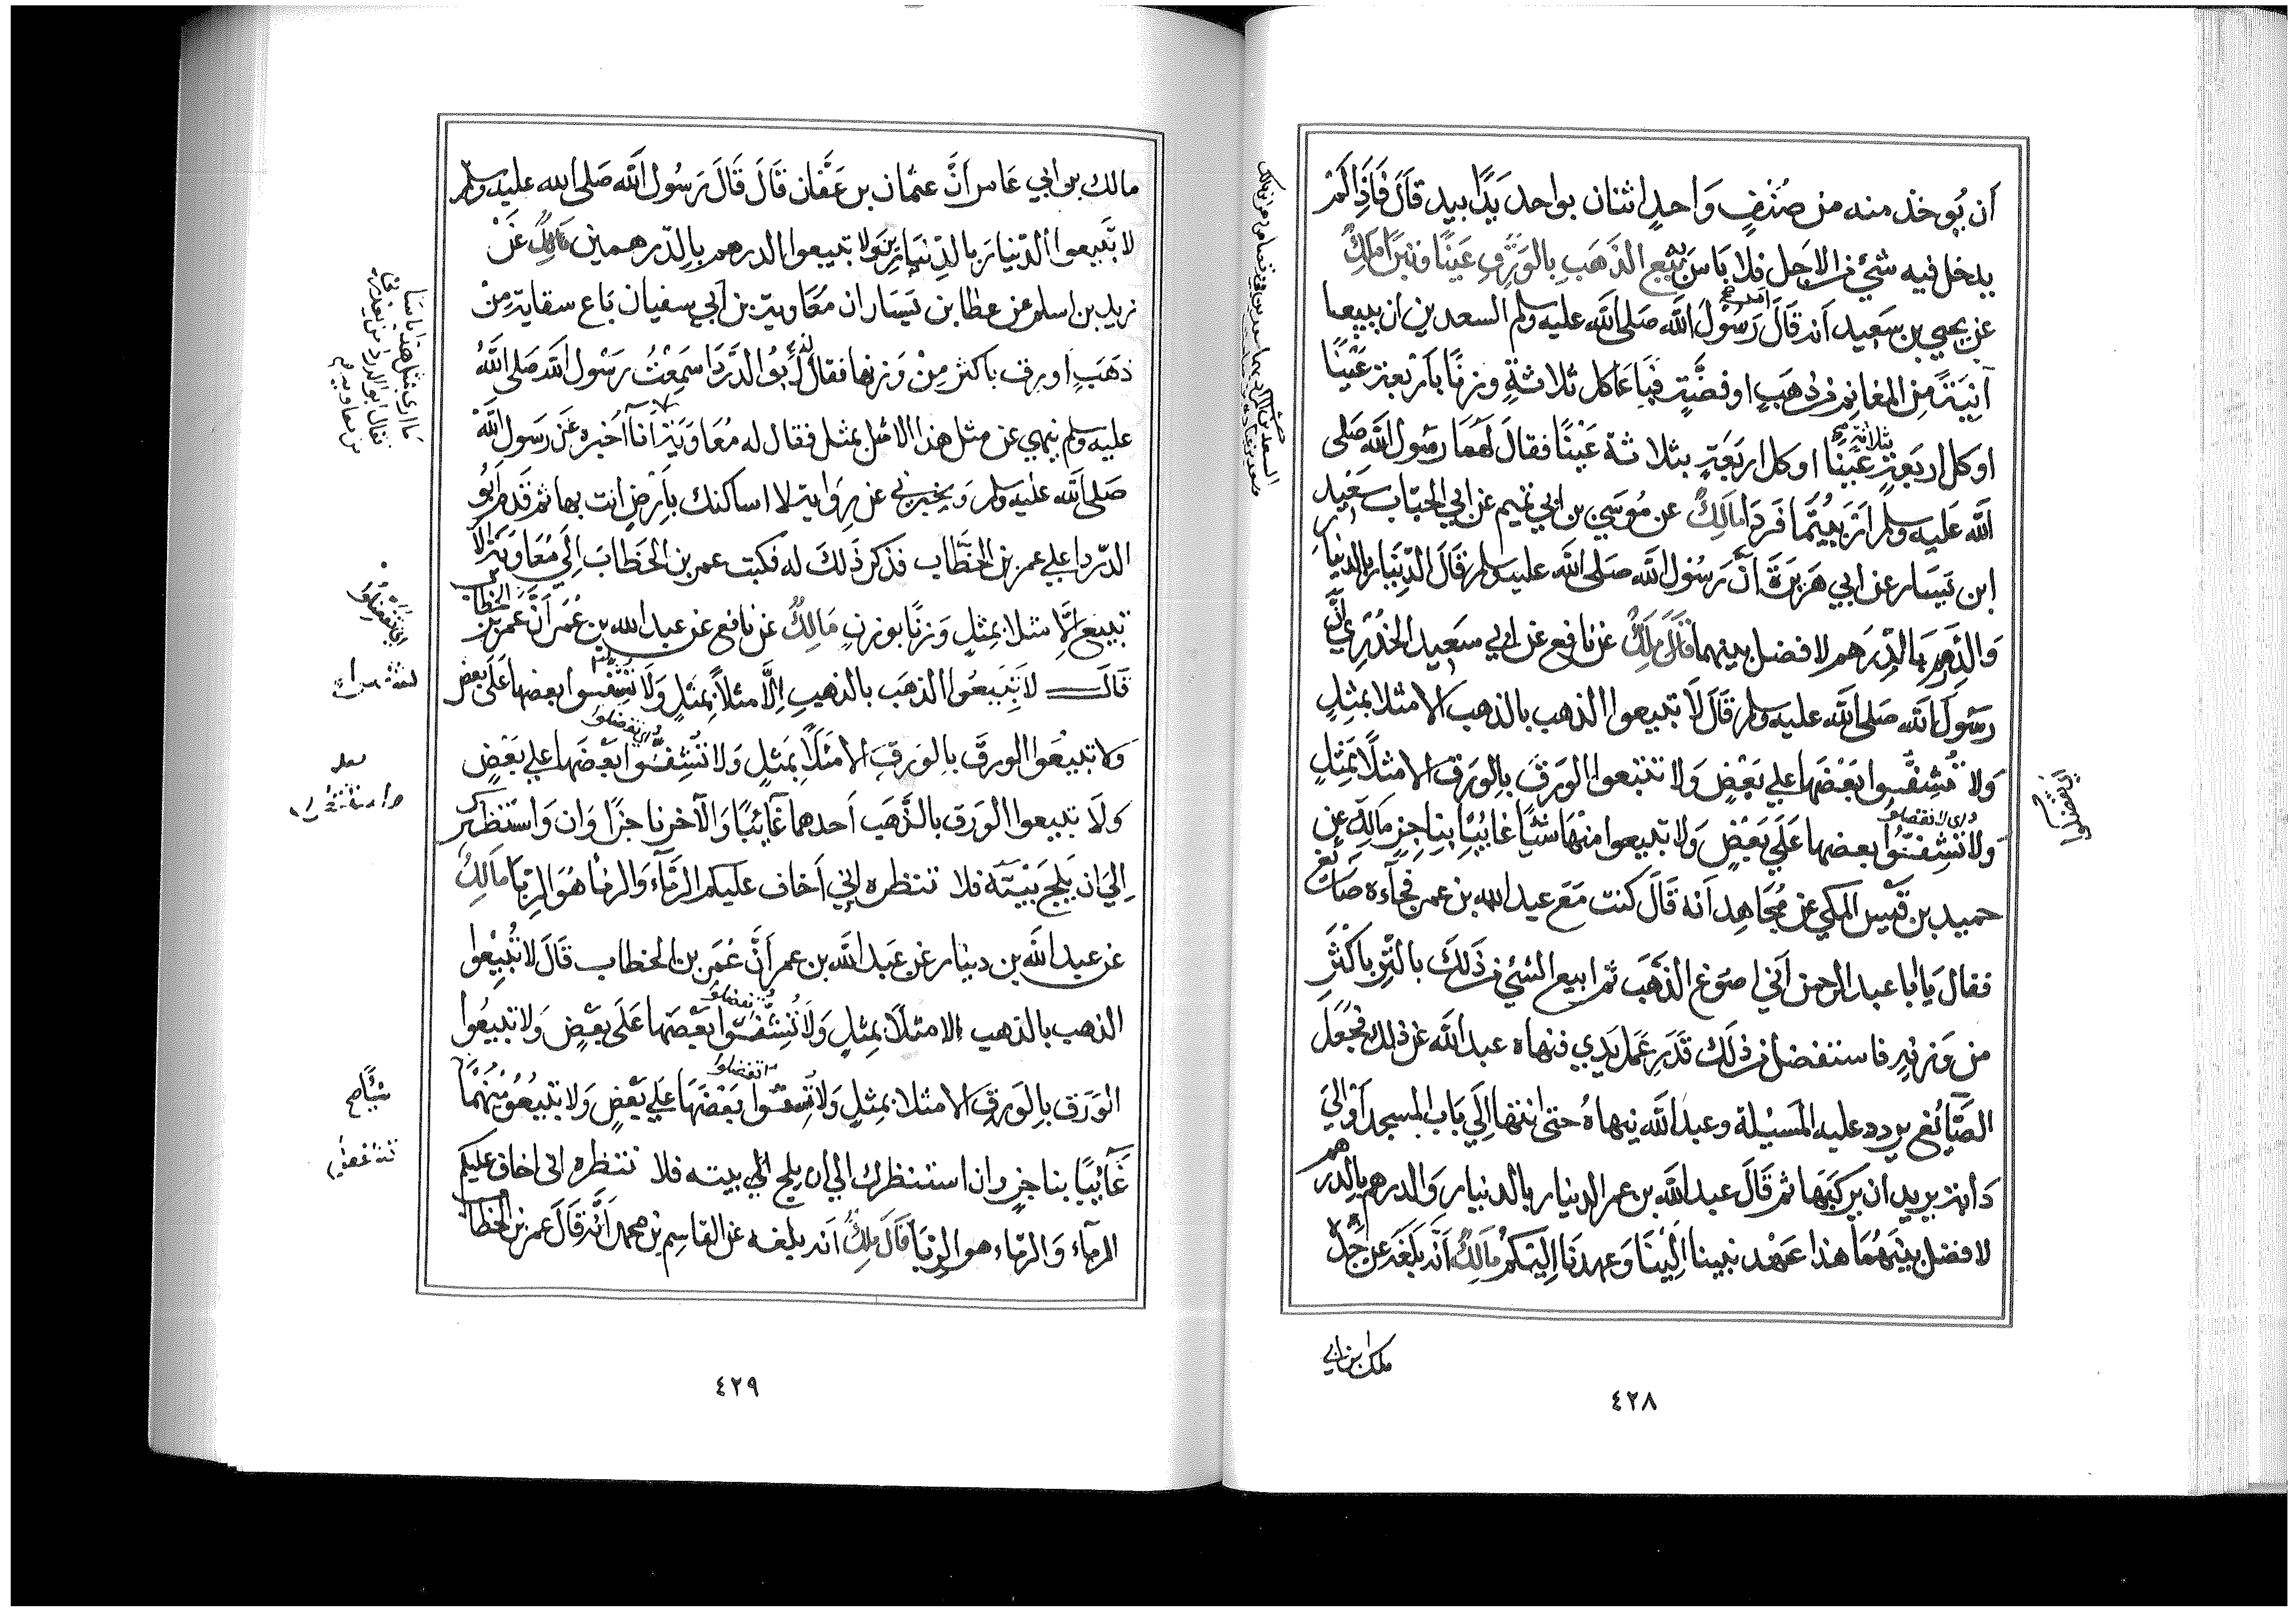 أن يوخذ منه من صُنْفٍ وَاحدٍ اثنان بواحد يَدًا بيد قَالَ فَاذَا لَمْ
يدخل فيه شئ من الاجل فلا باس ببيع الذَهَبِ بِالوَرَقِ عَيْنًا وتبرًا مَالِكٌ
عن يحيي بن سَعِيد أنه قَالَ أمر رَسُولُ اللَّه صَلى اللَّه عليه وسلم السعدين ان يبيعا
آنِيَةً مِنَ المغانم من ذهَبٍ اوفضَّةٍ فبَاعَا كل ثلاثةٍ وزنًا بأرْبعة عَيْنًا
او كل اربَعَةٍ بثلاثة عَيْنًا او كل اربَعَةٍ بثلاثة عَيْنًا فقالَ لهُمَا رسُول اللَّه صَلى
اللَّه عَليه وسلم أرْبَيتُمَا فَردَا مَالِكٌ عن مُوسَي بن ابي تميم عن ابي الحبَاب سَعِيد
ابن يَسَار عن ابي هَرَيرَةَ أنَّ رَسُول اللَّه صَلى اللَّه عليه وسلم قَالَ الدِينَار بالدينار
وَالدِرهم بالدِرَهم لا فضل بينهما قَالَ مَلِكٌ عن نافع عن ابي سَعيد الخدْرِيِ أنَّ
رسُولَ اللَّه صَلى اللَّه عليه وسلم قَالَ لَا تبيعوا الذهب بالذهب الا مثلا بمثِلٍ
وَلا تُشِفُّوا بَعْضَهَا علي بَعْضٍ وَلا تبيعوا الوَرقَ بِالوَرقِ الا مثلًا بمَثِلٍ
وَلا تُشِفُّوا بعضها عَلَي بَعْضٍ وَلا تبيعوا منهَا شيْاً غَايِبًا بنِاجِزٍ مَالِك عن
وى لا تفضلوا
حميد بن قَيْس المكي عن مُجَاهِد أنه قَالَ كنت مَعَ عبد اللَّه بن عمر فجآءه صَائغ
فقال يَا ابا عبد الرحمن اني اصَوغ الذَهَبَ ثم ابيع الشئ من ذَلكَ بالتِر بأكْثَرَ
من وَزنِهِ فاستفضل من ذلَك قَدَر عَمل يَدي فنهاه عبد اللَّه عن ذلك فجَعَلَ
الصَّائغ يردد عليه المَسْيلة وعبد اللَّه ينهاهُ حتى انتها الَي بَاب المسجد أوْ الَي
دَابة يريد ان يركبَهَا ثم قَالَ عبد اللَّه بن عمر الدينار بالدينار وَالدرهم بالدرهم
لا فضل بينَهُمَا هذا عَهْد نبينا الَيْنَا وَعهدنَا اليَكمْ مَالَكٌ أنَّه بَلَغَه عن جده
ملك ابن ابي
٤٢٨
مالك بن ابي عَامر أنَّ عثمان بن عَفَّان قَالَ قَالَ رَسُول اللَّه صَلى اللَه عليه وسلم
لا تَبيعوا الدّينارَ بالدِّينَارَينِ وَلا تبيعوا الدرهم بِالدّرهمين مَالِكٌ عَنْ
زيد بن اسلم عن عطا بن يَسَار ان مُعَاوية بن أبي سفيان بَاع سقاية مِنْ
ذهَبٍ او ورق باكثر مِنْ وَزنها فقال له أبُو الدَّردَا سَمِعْتُ رَسْول اللَّه صَلى اللَّهُ
عليه وسلم ينهي عن مثل هذا الا مثل بمثل فقال له مُعَاوَيَة أنَا أخبره عَن رَسول اللَّه
صَلى اللَّه عليه وسلم وَيخبرني عن رِوَاية لا اساكنك بأرْضٍ انت بها ثم قدم أبُو
الدّردا علي عمر بن الخطَّاب فذكر ذَلكَ له فكتب عمر بن الخطابَ الَي مُعَاويَة الا
تبيع الَّا مثلا بِمثلٍ وَزنًا بوزنٍ مَالِكٌ عن نافع عن عبد اللَّه بن عُمَر أنَّ عمَر بن الخطاب
قَالَ لَا تَبِيعُوا الذهَب بالذهبِ الَّا مثلاً بِمثلٍ وَلا تُشِفُّوا بعضها عَلَي بَعض
وَلا تبيْعَوا الورقَ بِالوَرقِ الا مَثَلًا بِمَثلٍ وَلا تُشِفُّوا بَعْضَهَا علي بَعْضٍ
وَلَا تبيعوا الوَرق بالذَّهَب أحدهما غَائِبًا وَالآخر نا جزًا وَان وَاستنظرك
الِي ان يَلجَ بَيْتَه فلا تنتظره إني أخاف عليكم الرمَآء وَالرمَا هُوَ الرِبَا مَالِكٌ
عن عبد اللَّه بن دينار عن عَبد اللَّه بن عمر أنَّ عُمَر بن الخطاب قَالَ لا تَبِيْعوا
الذهب بالذهب الا مثلًا بِمثلٍ وَلا تُشِفُّوا بَعْضَهَا عَلَى بعْضٍ وَلا تبيعُوا
الوَرَق بِالوَرق الا مثلا بِمثلٍ وَلا تُشِفُّوا بَعْضَهَا عَلَي بَعْضٍ وَلا تبيعُوُ مِنهُمَا
غَآئِبًا بناجزٍ وان استنظرك الي ان يلج الي بيته فلا تنتظره انى اخاف عليكم
الرمآء وَالرمَاء هو الرِبَا قَالَ مَلِكٌ أنه بلغه عن القاسِم بن محمد أنَّه قَالَ عمر بن الخطاب
ما ارى بمثل هذا باسا
فقال ابو الدردا من يعذرني
من معاوية
شيئاً صح
٤٢٩